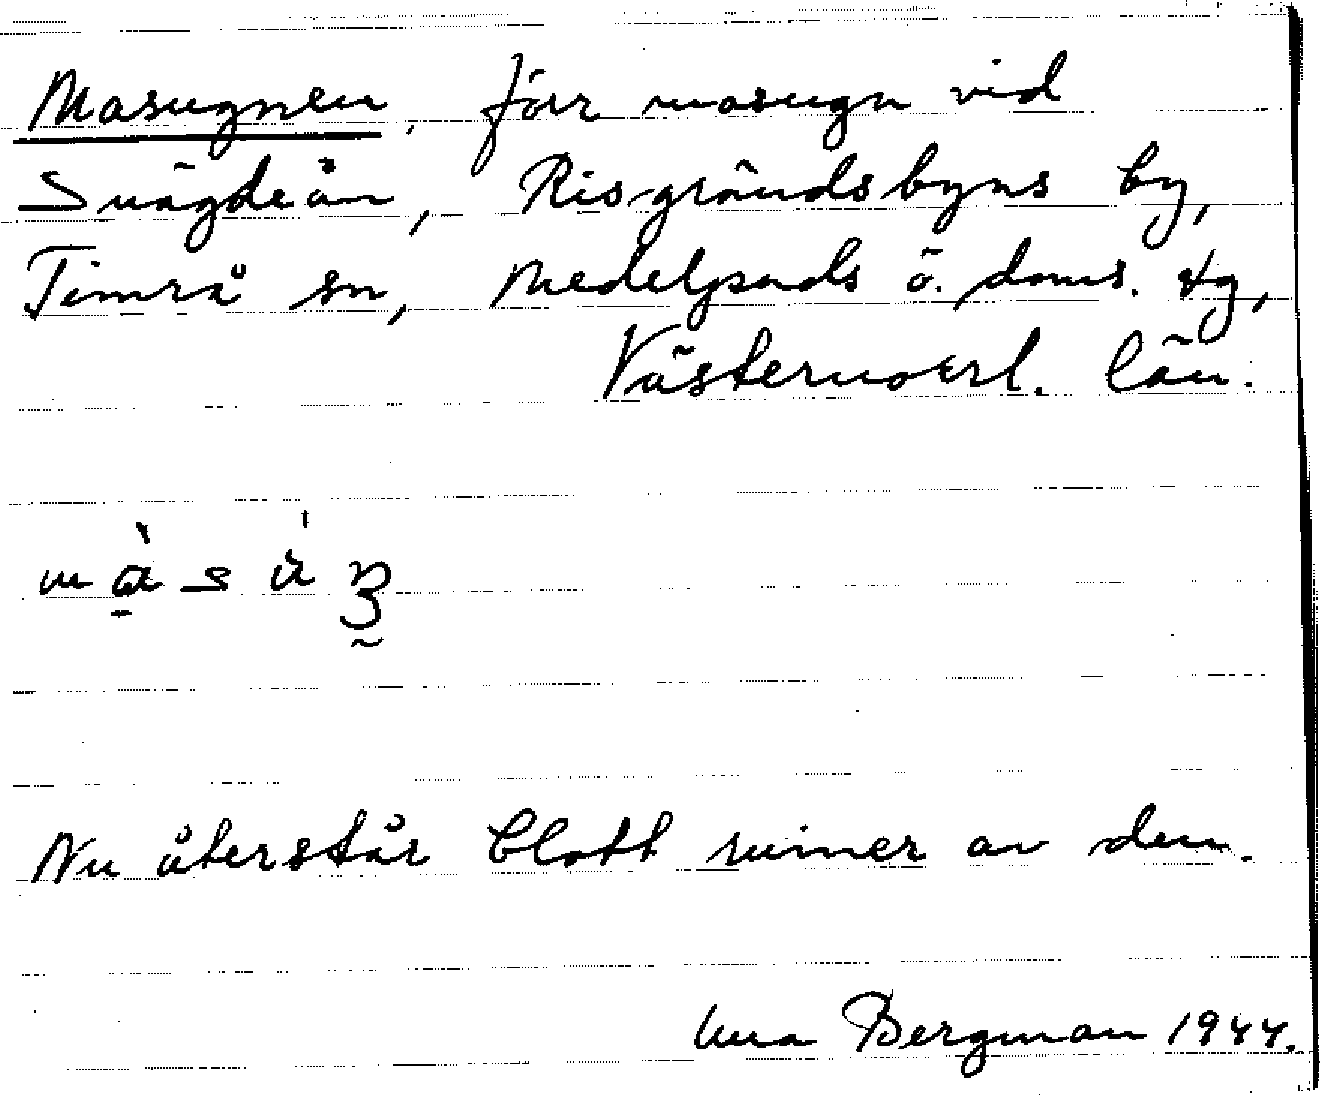 Masugnen, förr masugn vid
Smägdeån, Risgrändsbyns by,
Timrå sn, Medelpads ö. doms. tg,
Västernorrl. län.
Nu återstår blott ruiner av den.
Bergman 1944.